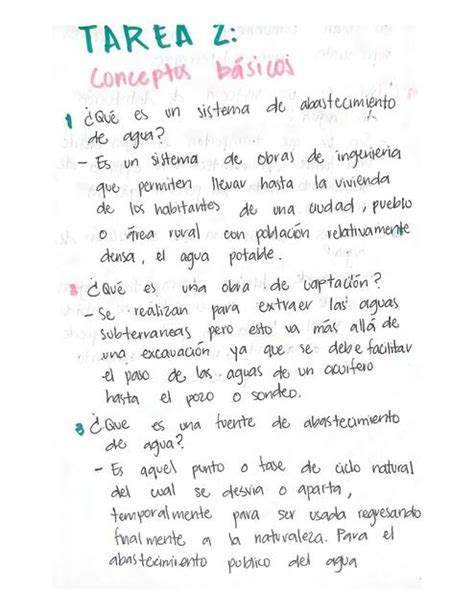 TAREA 2:
conceptos básicos
1 ¿Qué es un sistema de abastecimiento
de agua?
- Es un sistema de obras de ingenieria
que permiten llevar hasta la vivienda
de los habitantes de una ciudad, pueblo
o área rural con población relativamente
densa, el agua potable.
2 ¿Qué es una obra de captación?
- Se realizan para extraer las aguas
subterraneas pero esto va más allá de
una excavación ya que se debe facilitar
el paso de las aguas de un acuifero
hasta el pozo o sondeo.
3 ¿Que es una fuente de abastecimiento
de agua?
- Es aquel punto o fase de ciclo natural
del cual se desvia o aparta,
temporalmente para ser usada regresando
finalmente a la naturaleza. Para el
abastecimiento publico del agua